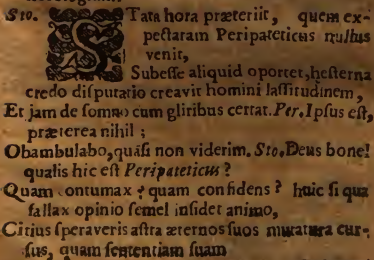 Sto. STata hora præteriit, quem ex-
pectaram Peripateticus nullus
venit,
Subesse aliquid oportet, hesterna
credo disputatio creavit homini lassitudinem,
Et jam de somno cum gliribus certat. Per. Ipsus est,
præterea nihil;
Obambulabo, quasi non viderim. Sto. Deus bone!
qualis hic est Peripateticus?
Quam contumax? quam confidens? huic si qua
fallax opinio semel insidet animo,
Citius speraveris astra æternos suos mutatura cur-
sus, quam sententiam suam